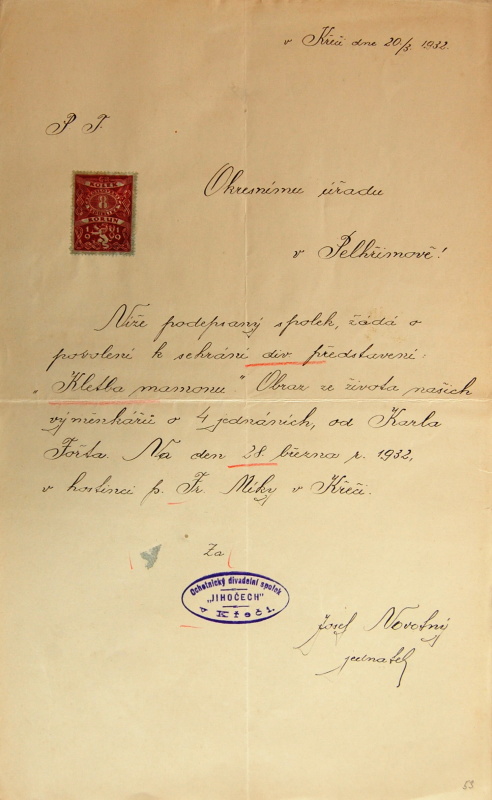 v Křeči dne 20/3. 1932.
P. T.
KOLEK
8
KORUN
1919
Okresnímu úřadu
v Pelhřimově!
Níže podepsaný spolek, žádá o
povolení k sehrání div. představení:
„Kletba mamonu." Obraz ze života našich
výměnkářů o 4 jednáních, od Karla
Fořta. Na den 28. března r. 1932,
v hostinci p. Fr. Míky v Křeči.
Za
Ochotnický divadelní spolek
„JIHOČECH"
v Křeči.
Josef Novotný
jednatel
53